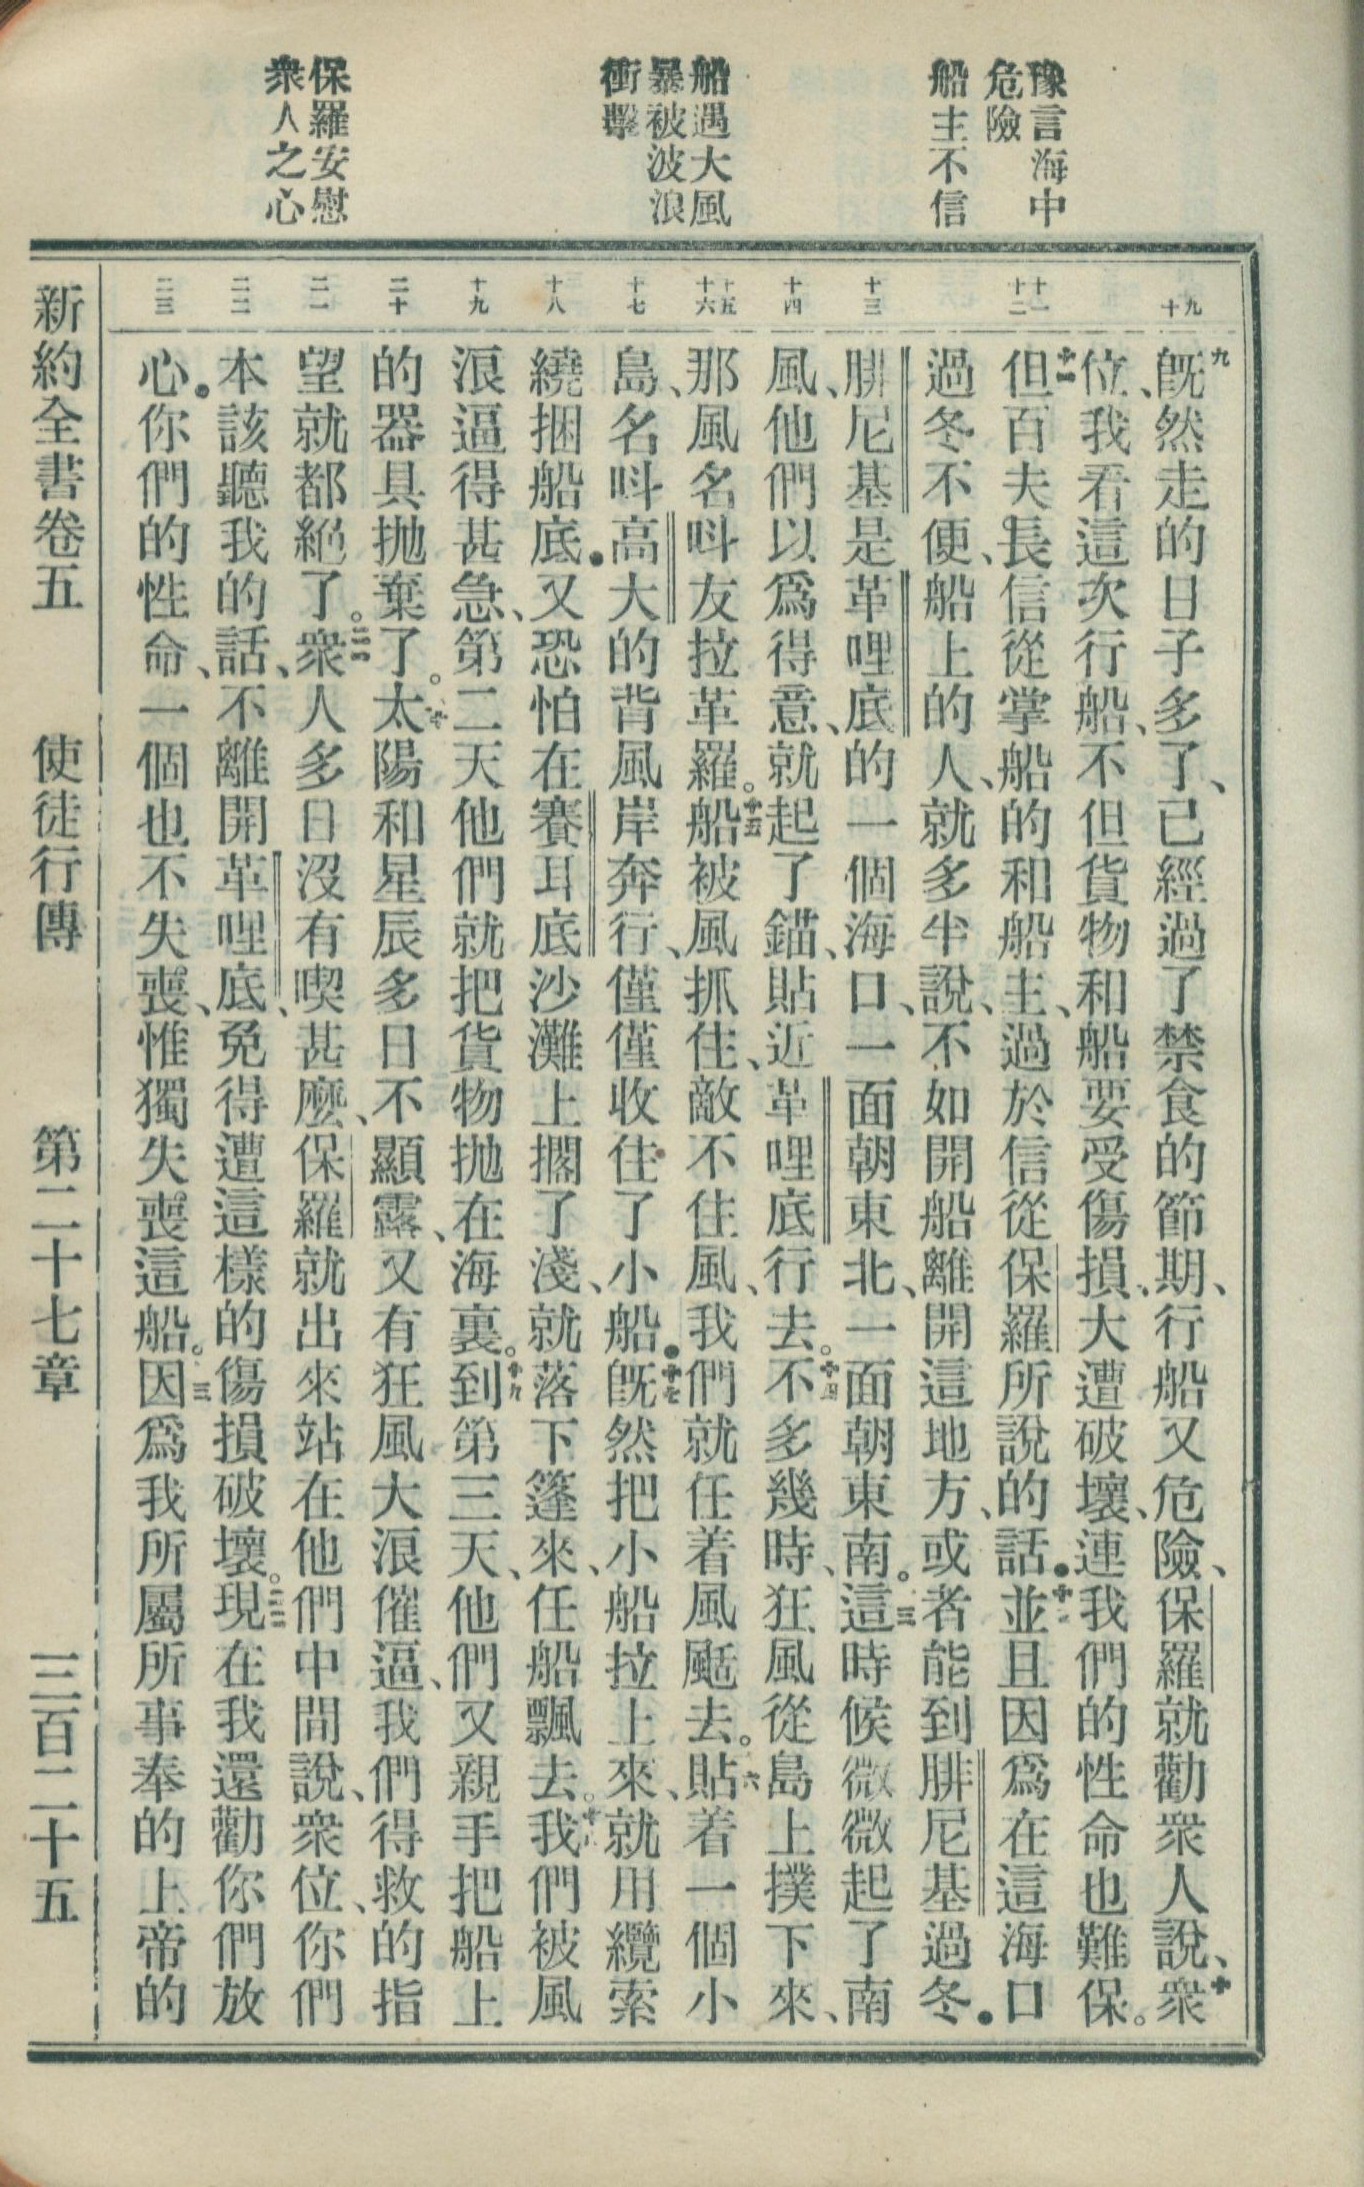 豫言海中
危險
船主不信
船遇大風
暴被波浪
衝擊
保羅安慰
衆人之心
九
十
十一
十二
十三
十四
十五
十六
十七
十八
十九
二十
二一
二二
二三
九既然走的日子多了、已經過了禁食的節期、行船又危險、保羅就勸衆人說、十衆
位、我看這次行船、不但貨物和船要受傷損、大遭破壞、連我們的性命也難保。
十一但百夫長信從掌船的和船主、過於信從保羅所說的話●十二並且因爲在這海口
過冬不便、船上的人、就多半說、不如開船離開這地方、或者能到腓尼基過冬●
腓尼基是革哩底的一個海口、一面朝東北、一面朝東南。十三這時候微微起了南
風、他們以爲得意、就起了錨、貼近革哩底行去。十四不多幾時、狂風從島上撲下來、
那風名呌友拉革羅。十五船被風抓住、敵不住風、我們就任着風颳去。十六貼着一個小
島、名呌高大的背風岸奔行、僅僅收住了小船●十七既然把小船拉上來、就用纜索
繞捆船底●又恐怕在賽耳底沙灘上擱了淺、就落下篷來、任船飄去。十八我們被風
浪逼得甚急、第二天他們就把貨物拋在海裏。十九到第三天、他們又親手把船上
的器具拋棄了。二十太陽和星辰多日不顯露、又有狂風大浪催逼、我們得救的指
望就都絕了。二一衆人多日沒有喫甚麼、保羅就出來站在他們中間說、衆位、你們
本該聽我的話、不離開革哩底、免得遭這樣的傷損破壞。二二現在我還勸你們放
心●你們的性命、一個也不失喪、惟獨失喪這船。二三因爲我所屬所事奉的上帝的
新約全書卷五 使徒行傳 第二十七章 三百二十五